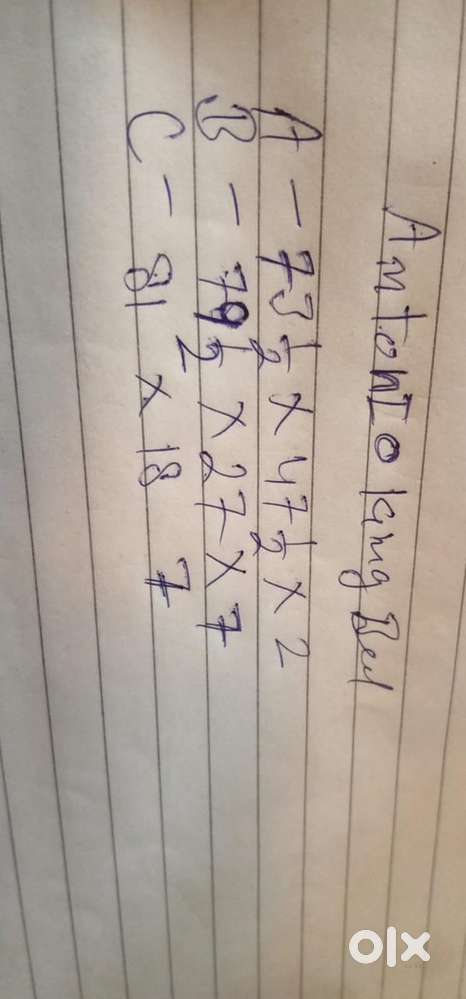 AntonIo King Bed
A - 73 1/2 x 47 1/2 x 2
B - 79 1/2 x 27 x 7
C - 81 x 18 7
olx